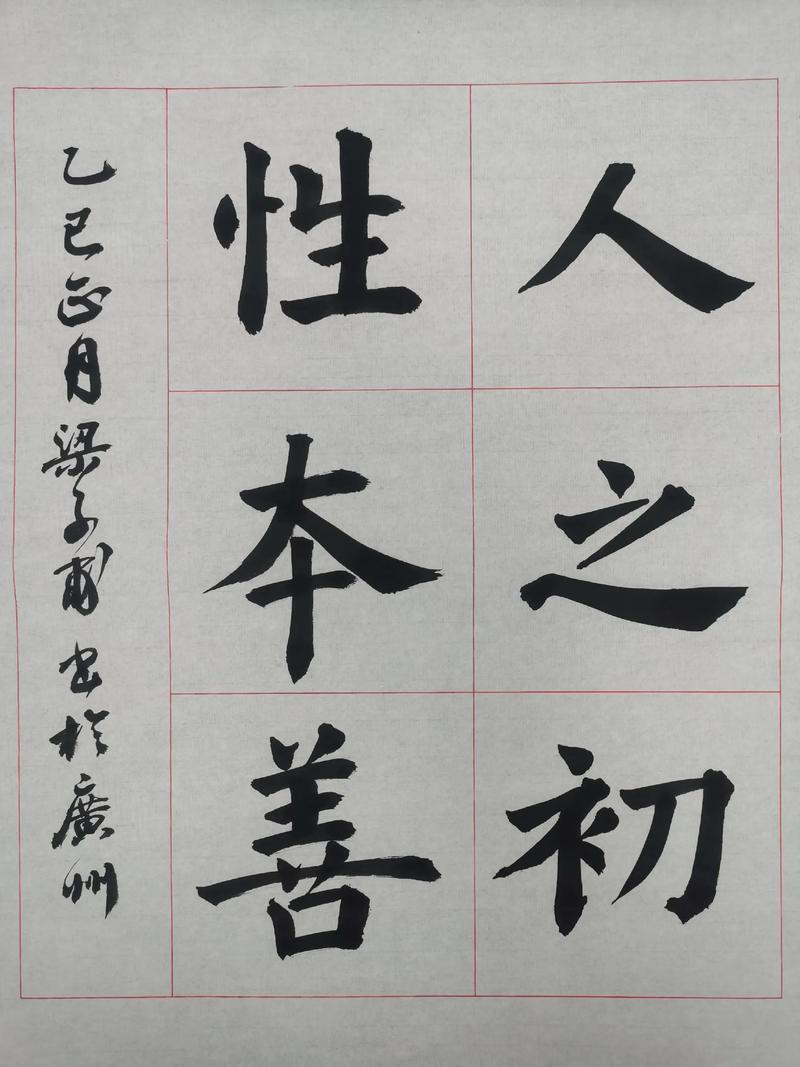 人之初
性本善
乙巳正月梁子甫书於廣州